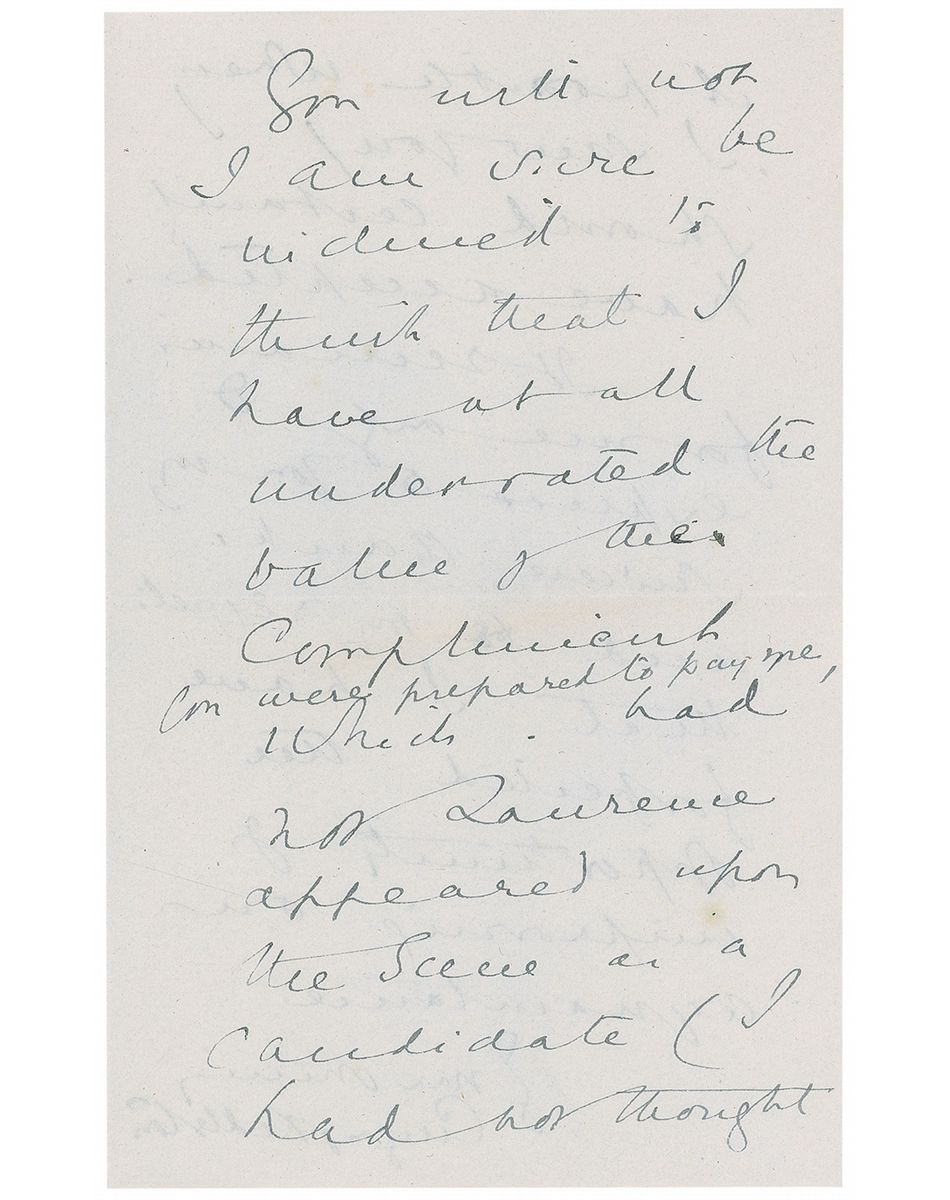 You will not
I am sure be
induced to
think that I
have at all
underrated the
value of the
Compliment
you were prepared to pay me,
which had
not Laurence
appeared upon
the Scene as a
candidate (I
had not thought